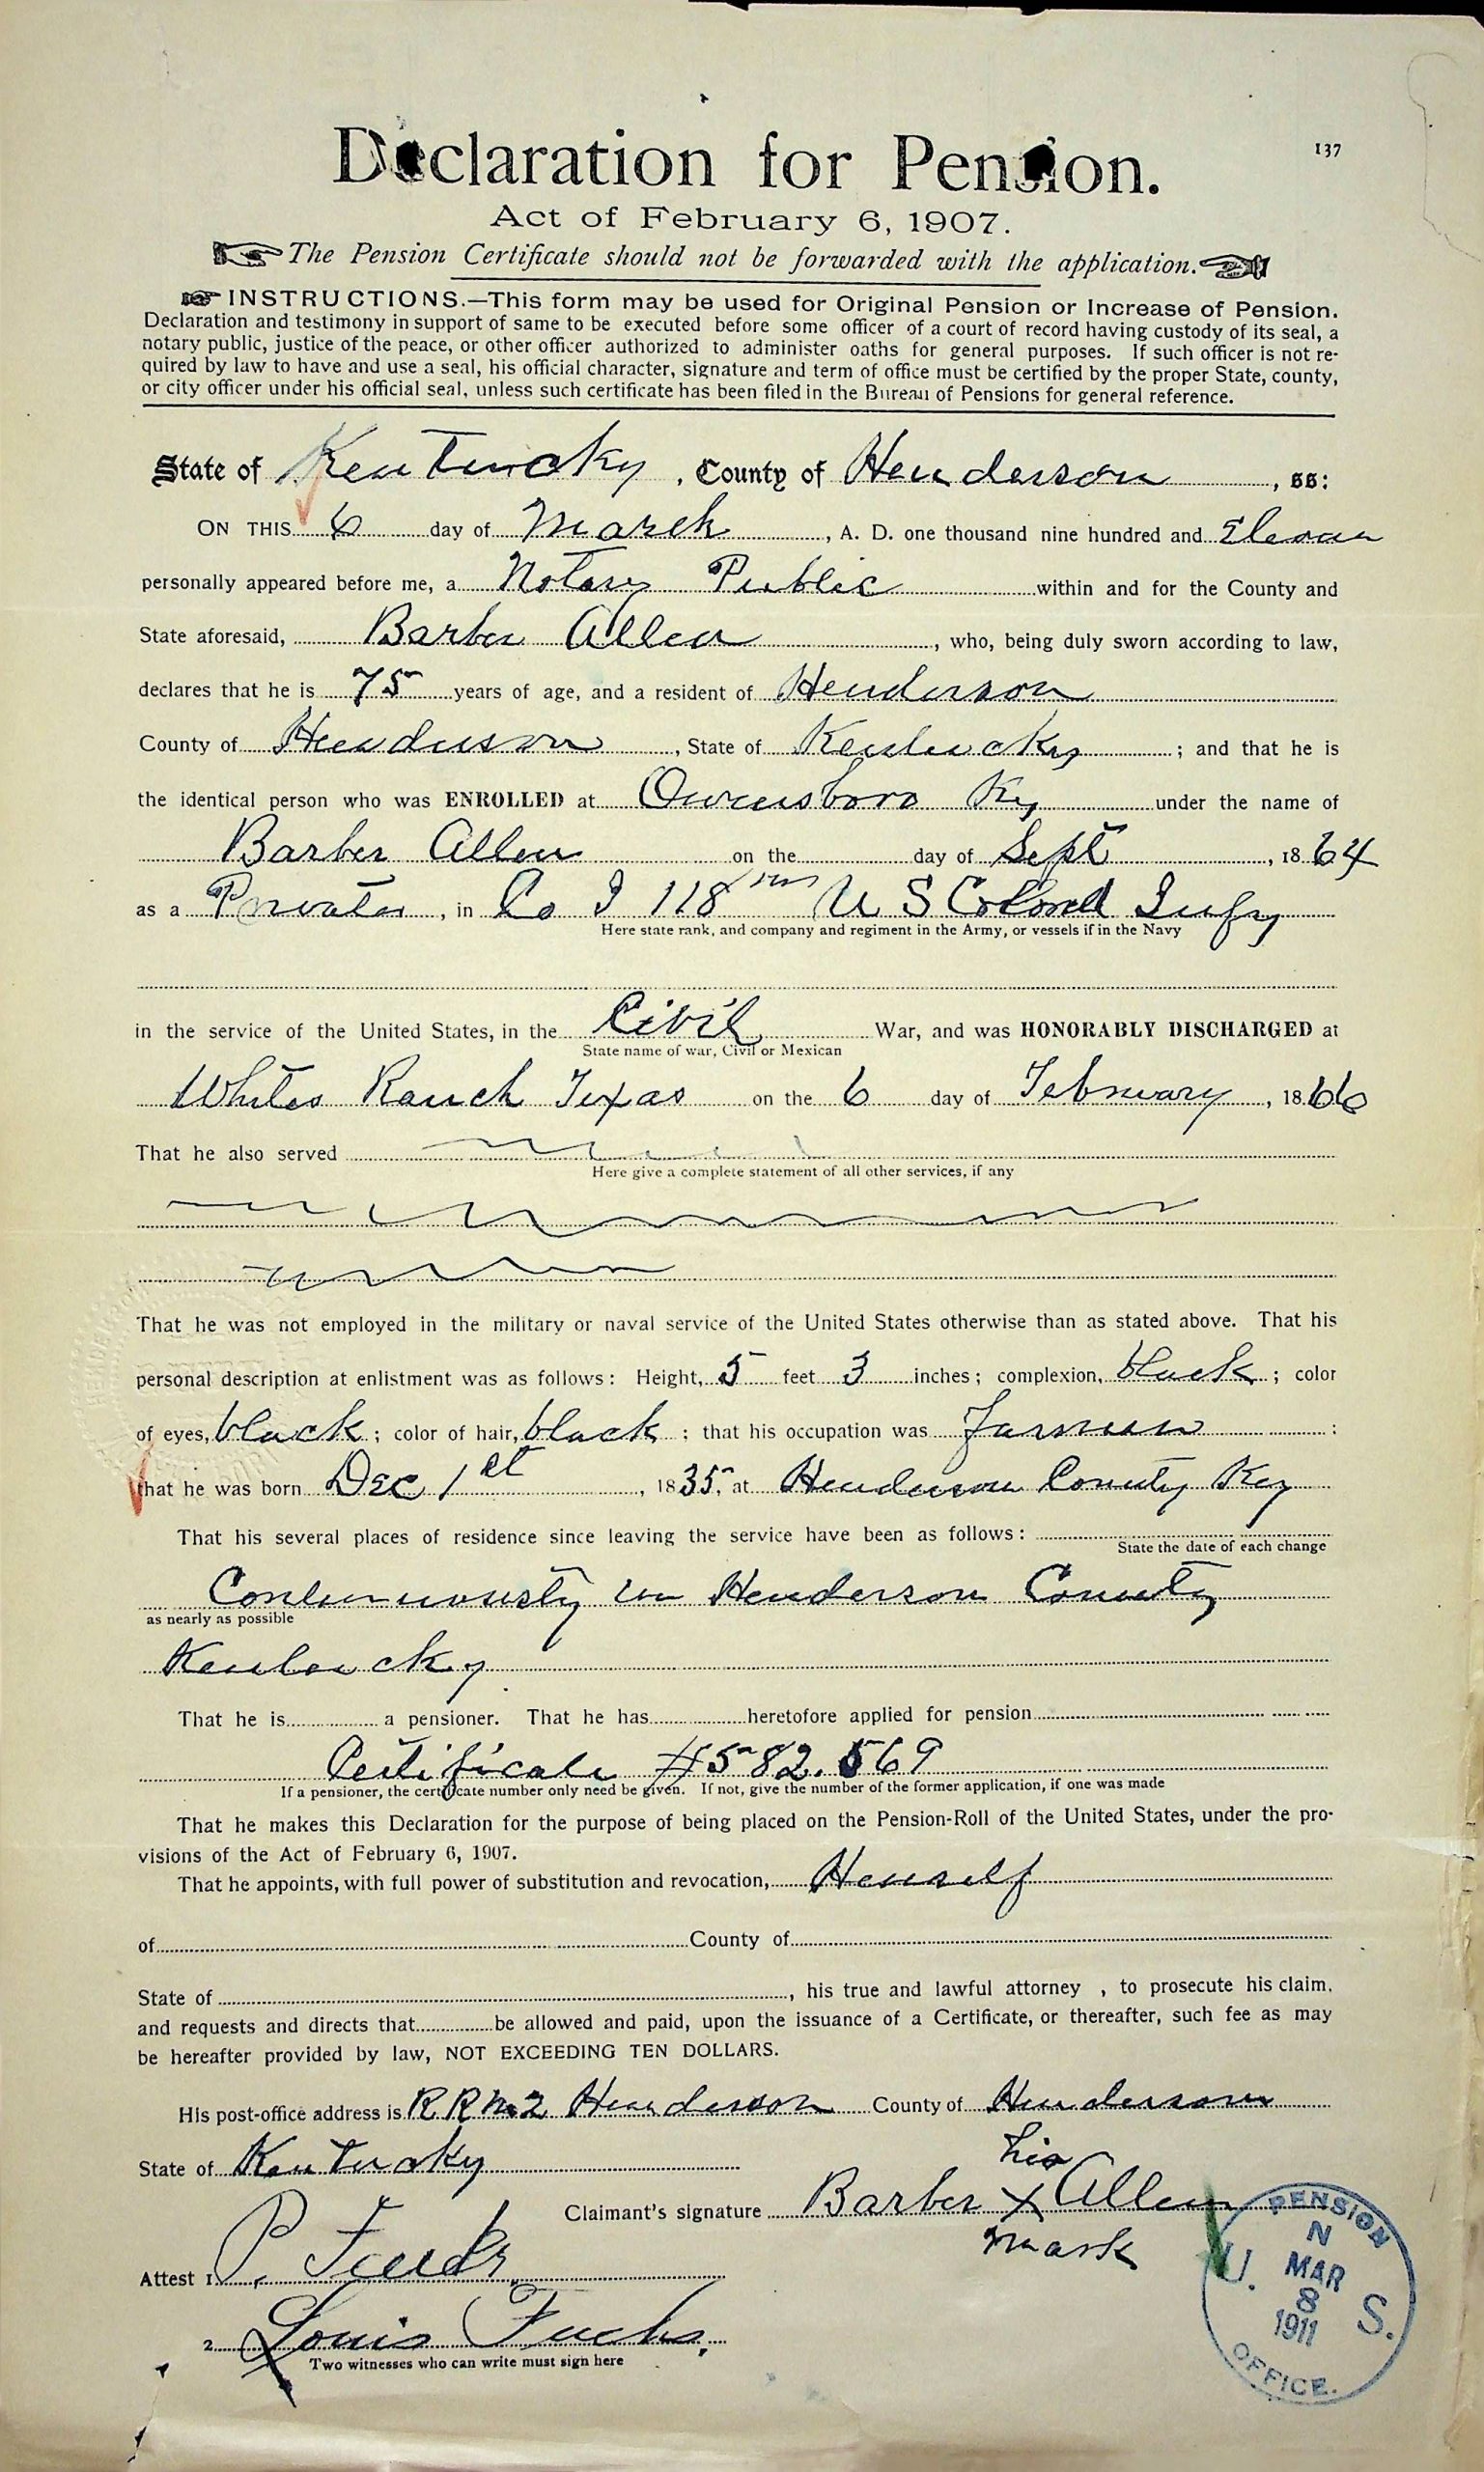 137
Declaration for Pension.
Act of February 6, 1907.
The Pension Certificate should not be forwarded with the application.
INSTRUCTIONS.—This form may be used for Original Pension or Increase of Pension.
Declaration and testimony in support of same to be executed before some officer of a court of record having custody of its seal, a
notary public, justice of the peace, or other officer authorized to administer oaths for general purposes. If such officer is not re-
quired by law to have and use a seal, his official character, signature and term of office must be certified by the proper State, county,
or city officer under his official seal, unless such certificate has been filed in the Bureau of Pensions for general reference.
State of Kentucky, County of Henderson, ss:
ON THIS 6 day of March, A. D. one thousand nine hundred and Eleven
personally appeared before me, a Notary Public within and for the County and
State aforesaid, Barber Allen, who, being duly sworn according to law,
declares that he is 75 years of age, and a resident of Henderson
County of Henderson, State of Kentucky; and that he is
the identical person who was ENROLLED at Owensboro Ky under the name of
Barber Allen on the day of Sept, 1864
as a Private, in Co I 118 U S Colored Infy
Here state rank, and company and regiment in the Army, or vessels if in the Navy
in the service of the United States, in the Civil War, and was HONORABLY DISCHARGED at
State name of war, Civil or Mexican
Whites Ranch Texas on the 6 day of February, 1866
That he also served
Here give a complete statement of all other services, if any
That he was not employed in the military or naval service of the United States otherwise than as stated above. That his
personal description at enlistment was as follows: Height, 5 feet 3 inches; complexion, black; color
of eyes, black; color of hair, black; that his occupation was Farmer:
that he was born Dec 1st, 1835, at Henderson County Ky
That his several places of residence since leaving the service have been as follows:
State the date of each change
Continuously in Henderson County
as nearly as possible
Kentucky
That he is a pensioner. That he has heretofore applied for pension
Certificate #582.569
If a pensioner, the certificate number only need be given. If not, give the number of the former application, if one was made
That he makes this Declaration for the purpose of being placed on the Pension-Roll of the United States, under the pro-
visions of the Act of February 6, 1907.
That he appoints, with full power of substitution and revocation, Himself
of County of
State of, his true and lawful attorney , to prosecute his claim,
and requests and directs that be allowed and paid, upon the issuance of a Certificate, or thereafter, such fee as may
be hereafter provided by law, NOT EXCEEDING TEN DOLLARS.
His post-office address is R R No 2 Henderson County of Henderson
State of Kentucky
his
Claimant's signature Barber X Allen
mark
Attest 1. P.
2 Louis Fuchs.
Two witnesses who can write must sign here
PENSION
N
U. MAR S.
8
1911
OFFICE.